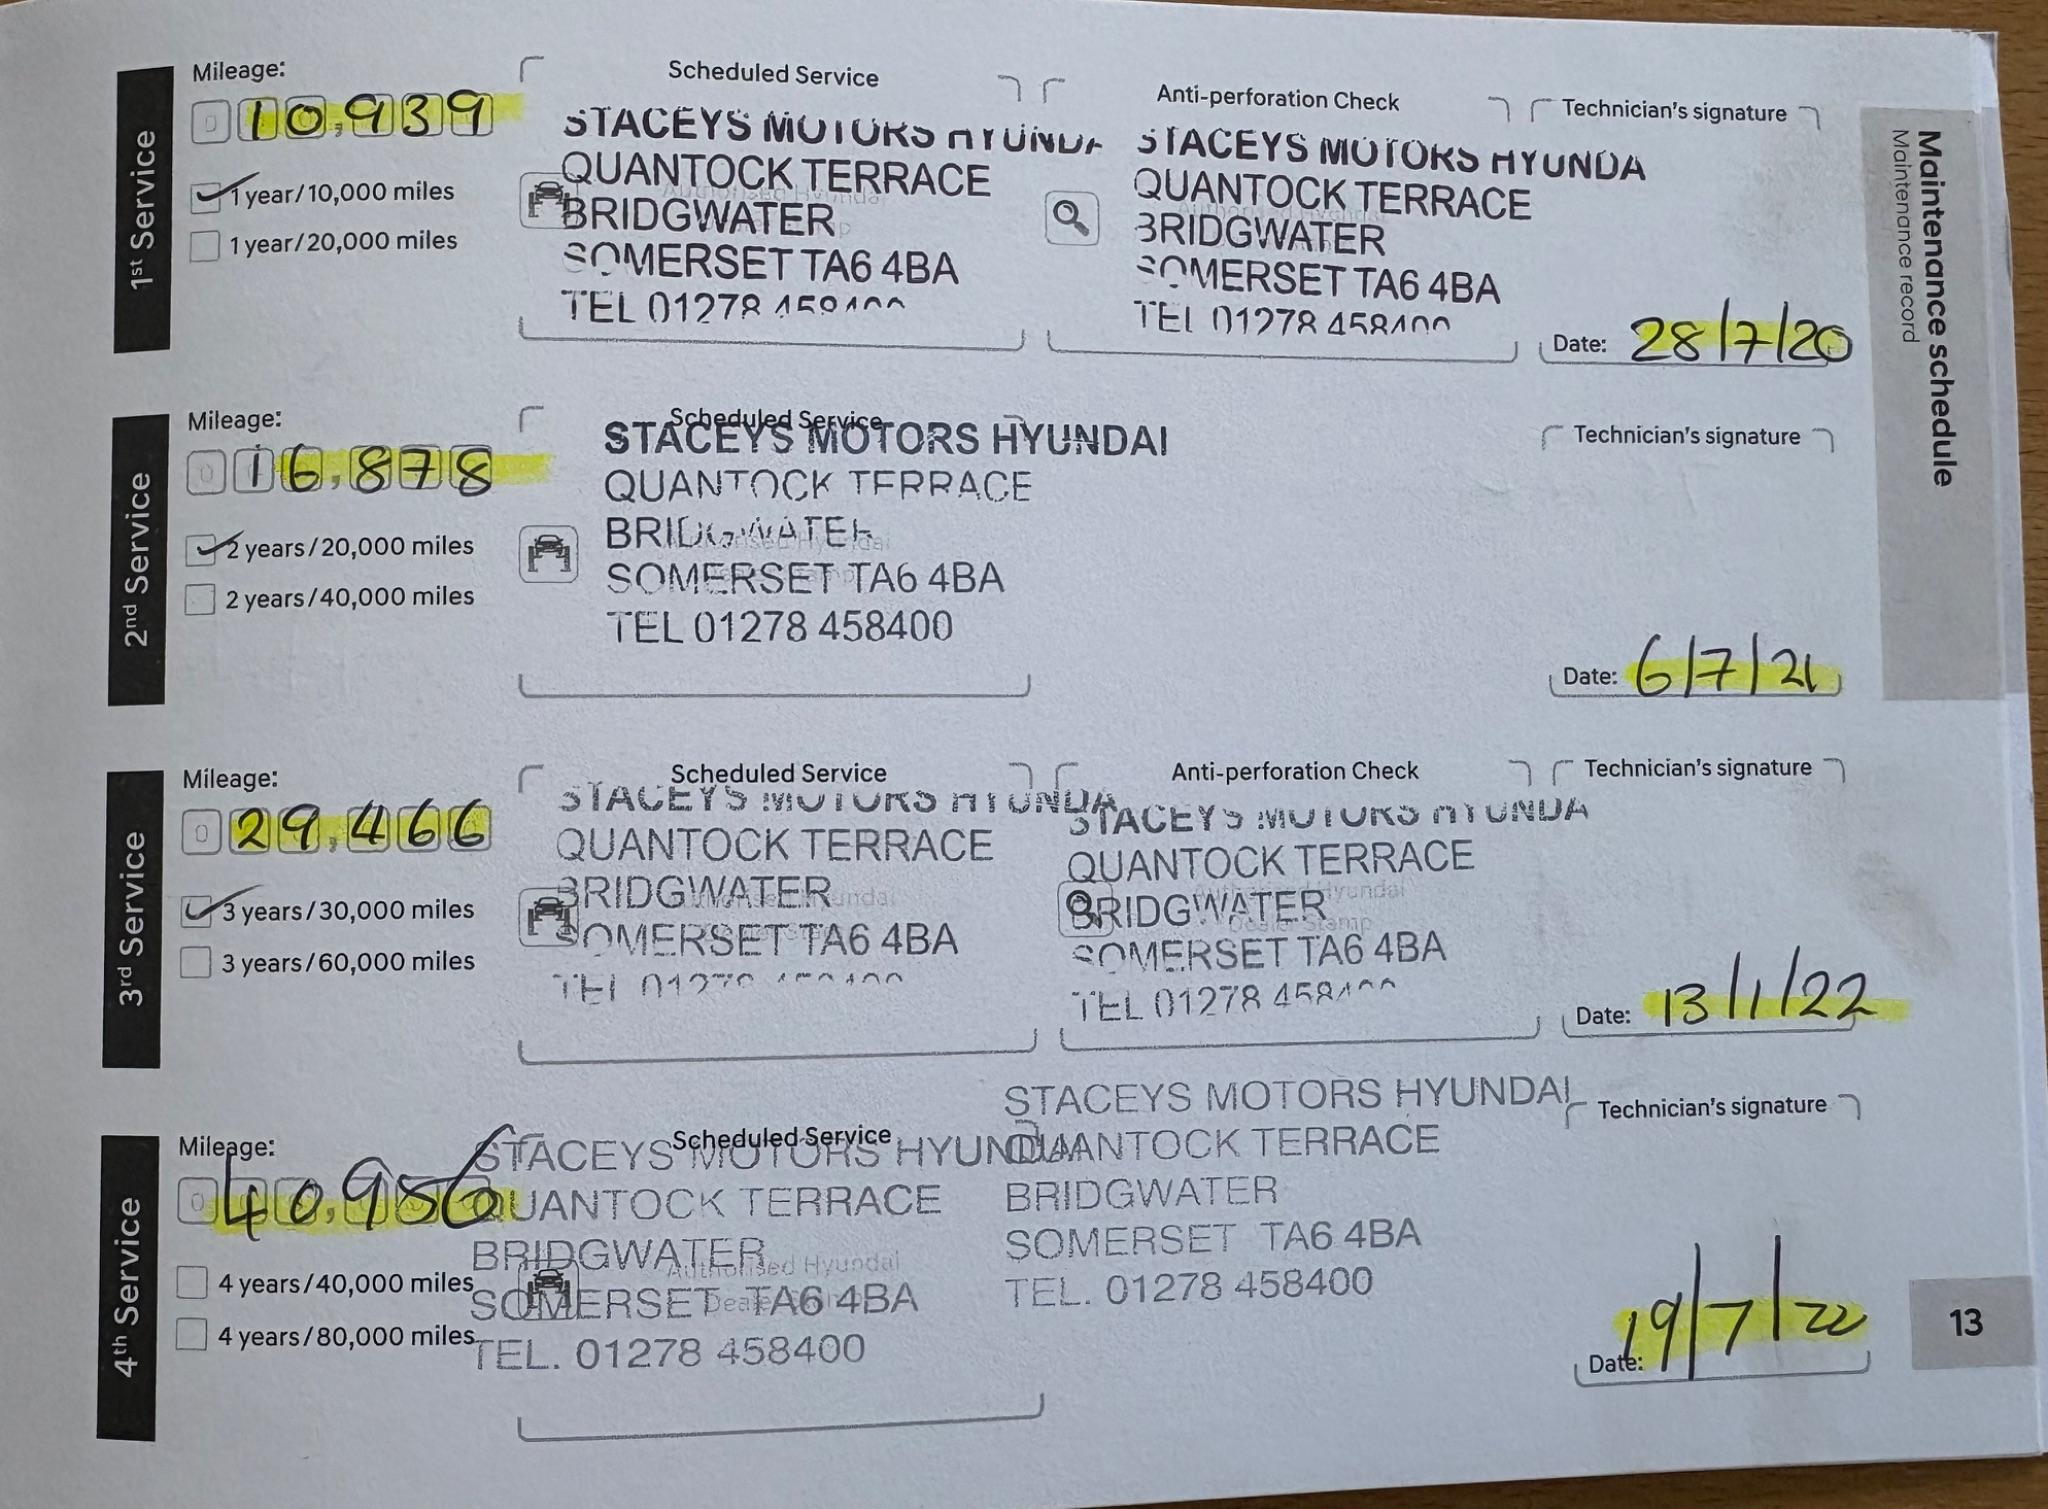 Maintenance schedule
Maintenance record
1st Service
Mileage:
10,939
1 year/10,000 miles
1 year/20,000 miles
Scheduled Service
STACEYS MOTORS HYUNDA
QUANTOCK TERRACE
BRIDGWATER
SOMERSET TA6 4BA
TEL 01278 458400
Anti-perforation Check
STACEYS MOTORS HYUNDA
QUANTOCK TERRACE
BRIDGWATER
SOMERSET TA6 4BA
TEL 01278 458400
Technician's signature
Date: 28/7/20
2nd Service
Mileage:
16,878
2 years/20,000 miles
2 years/40,000 miles
Scheduled Service
STACEYS MOTORS HYUNDAI
QUANTOCK TERRACE
BRIDGWATER
SOMERSET TA6 4BA
TEL 01278 458400
Technician's signature
Date: 6/7/21
3rd Service
Mileage:
0 29,466
3 years/30,000 miles
3 years/60,000 miles
Scheduled Service
STACEYS MOTORS HYUNDA
QUANTOCK TERRACE
BRIDGWATER
Authorised Hyundai
SOMERSET TA6 4BA
TEL 01278 458400
Anti-perforation Check
STACEYS MOTORS HYUNDA
QUANTOCK TERRACE
Authorised Hyundai
BRIDGWATER
Dealer Stamp
SOMERSET TA6 4BA
TEL 01278 458400
Technician's signature
Date: 13/1/22
4th Service
Mileage:
40,956
4 years/40,000 miles
4 years/80,000 miles
Scheduled Service
STACEYS MOTORS HYUNDAI
QUANTOCK TERRACE
BRIDGWATER
Authorised Hyundai
SOMERSET TA6 4BA
TEL. 01278 458400
STACEYS MOTORS HYUNDAI
QUANTOCK TERRACE
BRIDGWATER
SOMERSET TA6 4BA
TEL. 01278 458400
Technician's signature
Date: 19/7/22
13